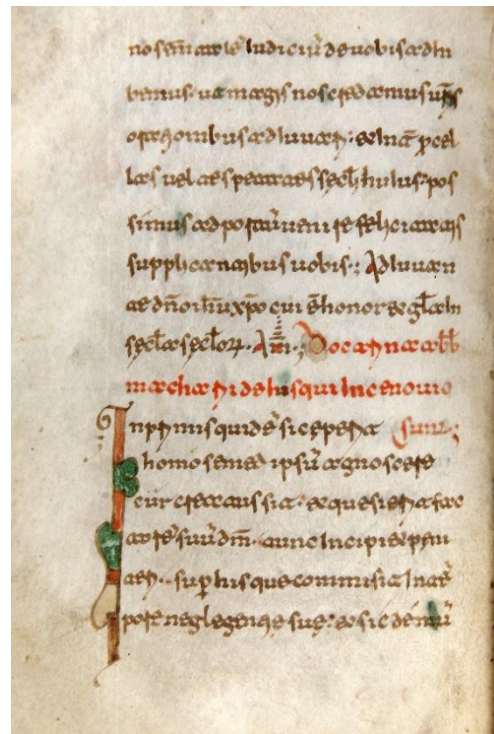 no sem̄ ante iudiciū de uobis adhi
bemus. ut magis nos credamus ur̄is
orationibus adiuuari. et int̄ ꝓcel
las uel tempestates sec̄li huius. pos
simus ad portū uenire felicitatis
supplicantibus uobis; Adiuuan
te dn̄o ih̄u xp̄o cui ē honor et gl̄a in
sec̄la sec̄lorꝝ. Am̄. Doctrina abb̄
macharii de his qui in cenouio
Inprimis quidē si ceperit sunt;
homo semet ipsū agnoscere
cur creatus sit. et quesierit fac
torē suū dm̄. tunc incipit peni
teri. sup̄ his que commisit in tē
pore neglegentię suę. et sic demū